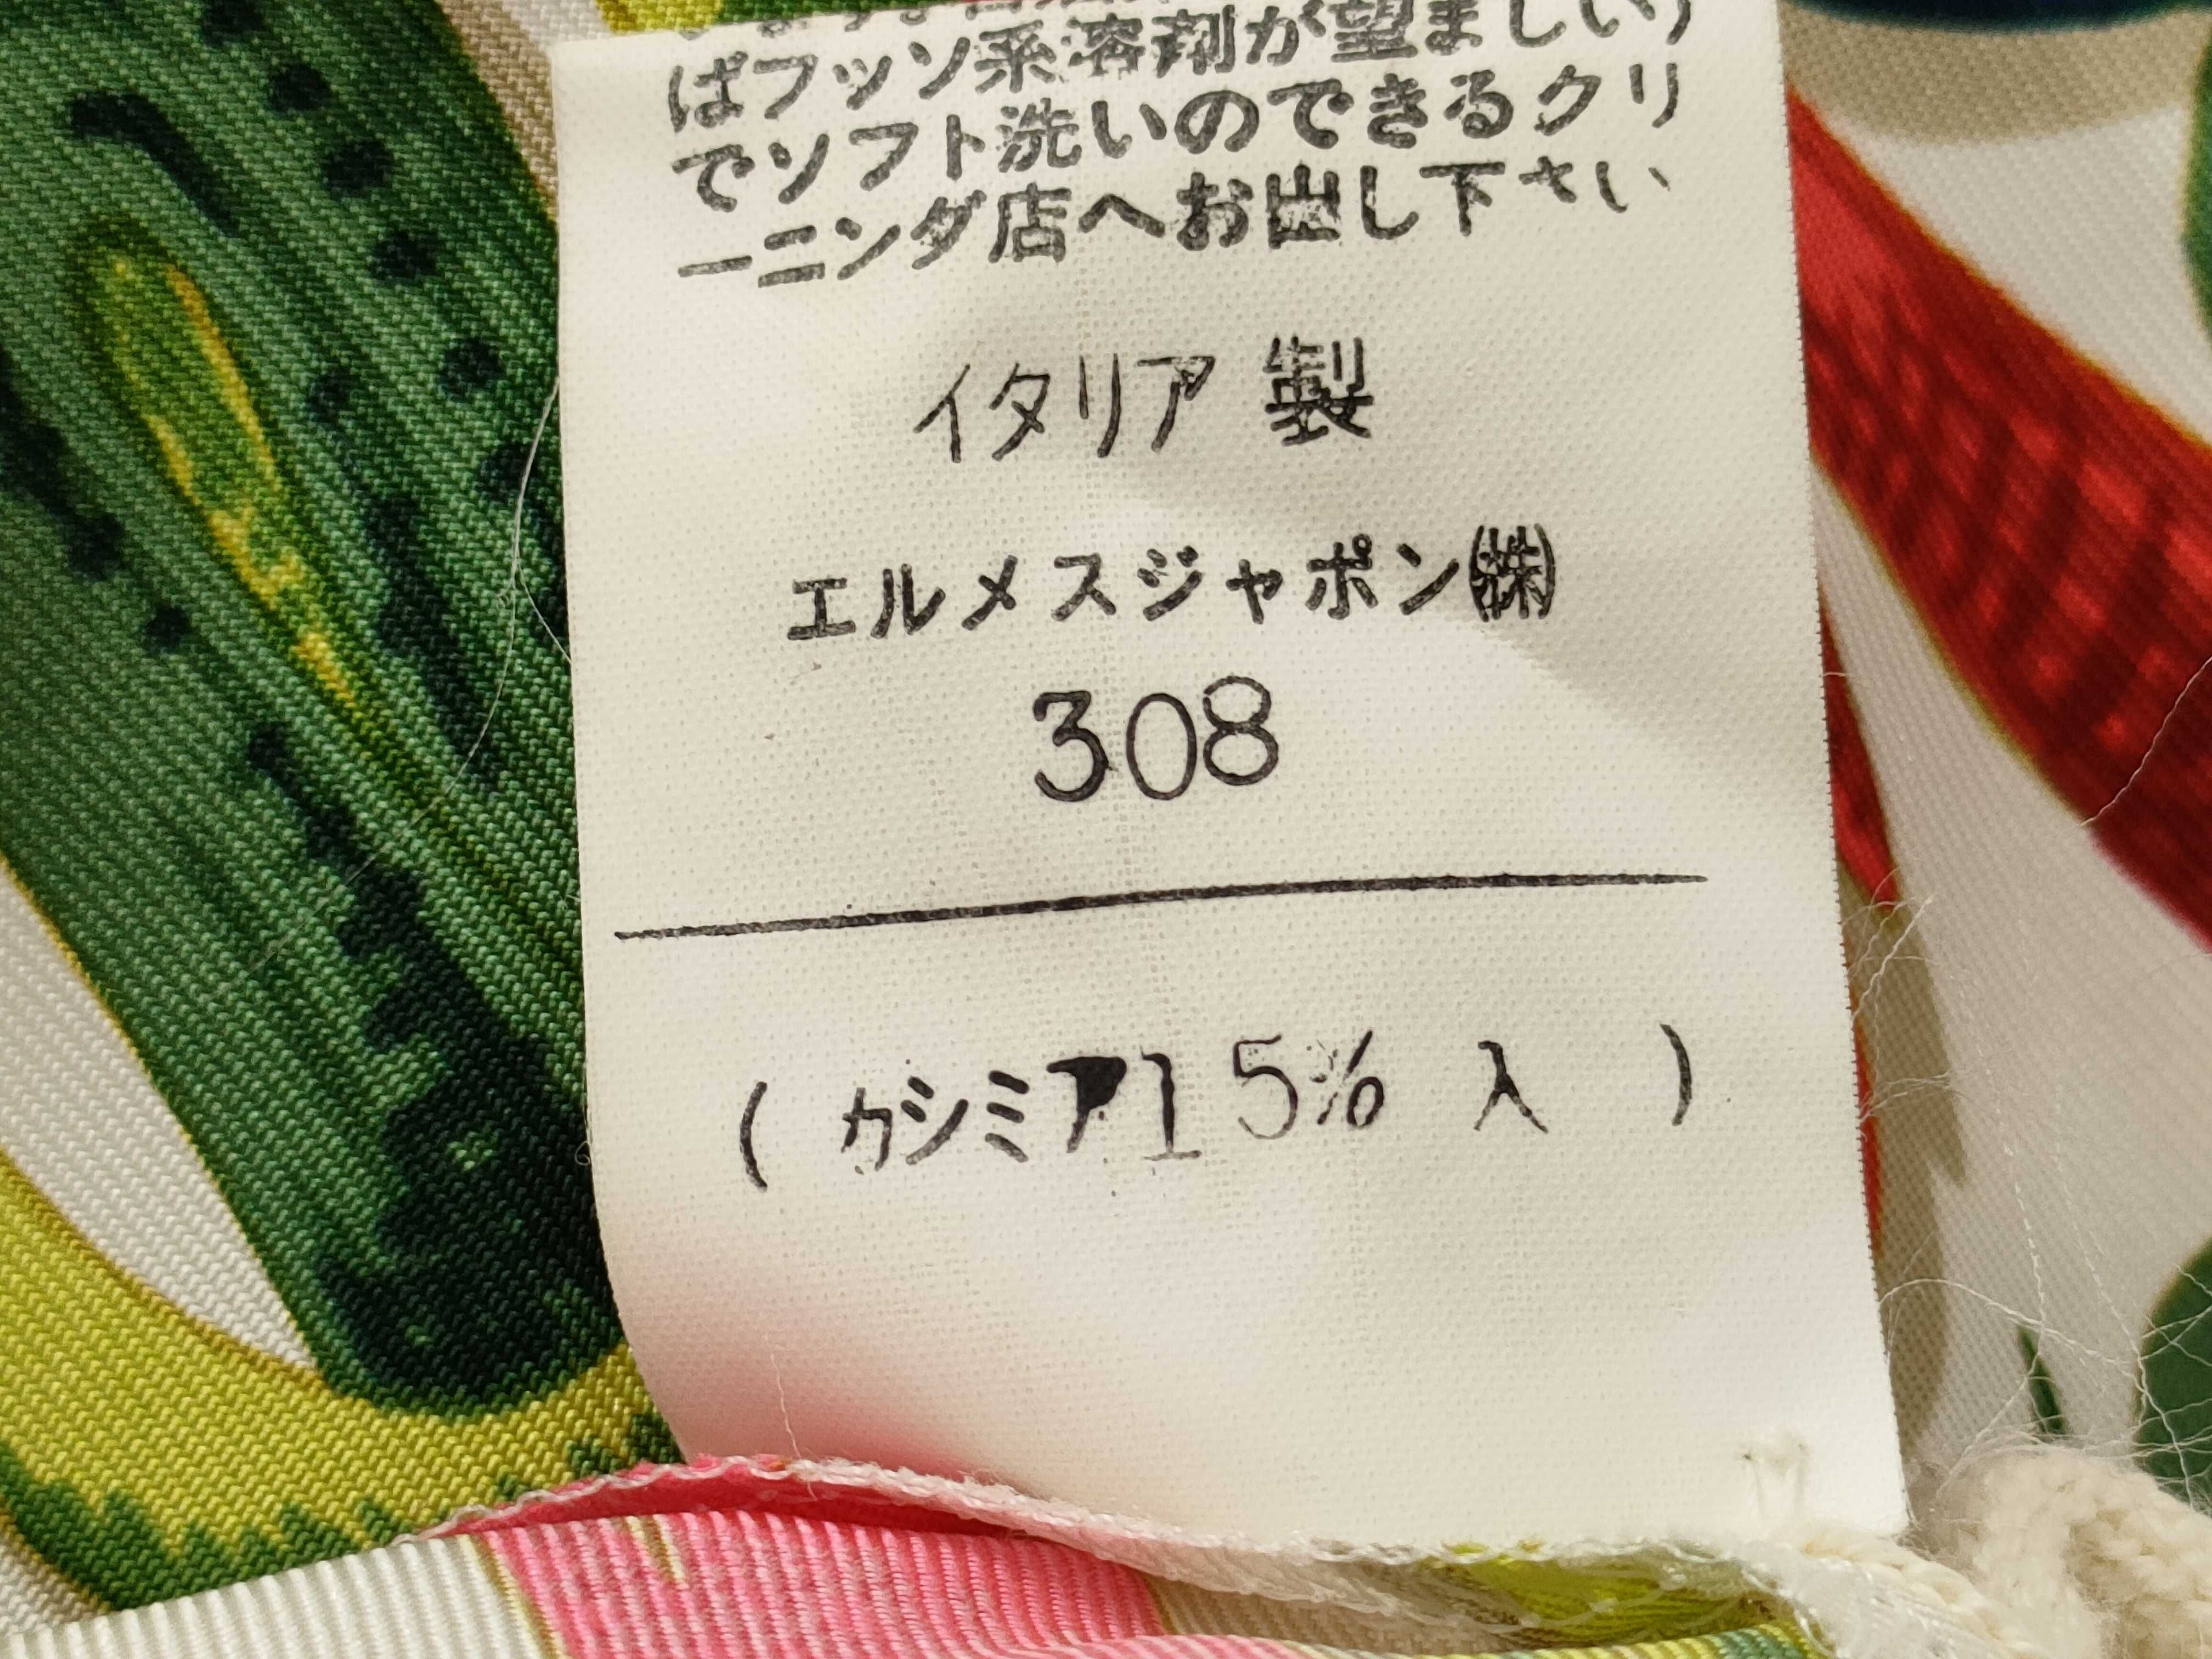 ばフッソ系溶剤が望ましい)
でソフト洗いのできるクリ
ーニング店へお出し下さい
イタリア 製
エルメスジャポン㈱
308
( カシミア15% 入 )